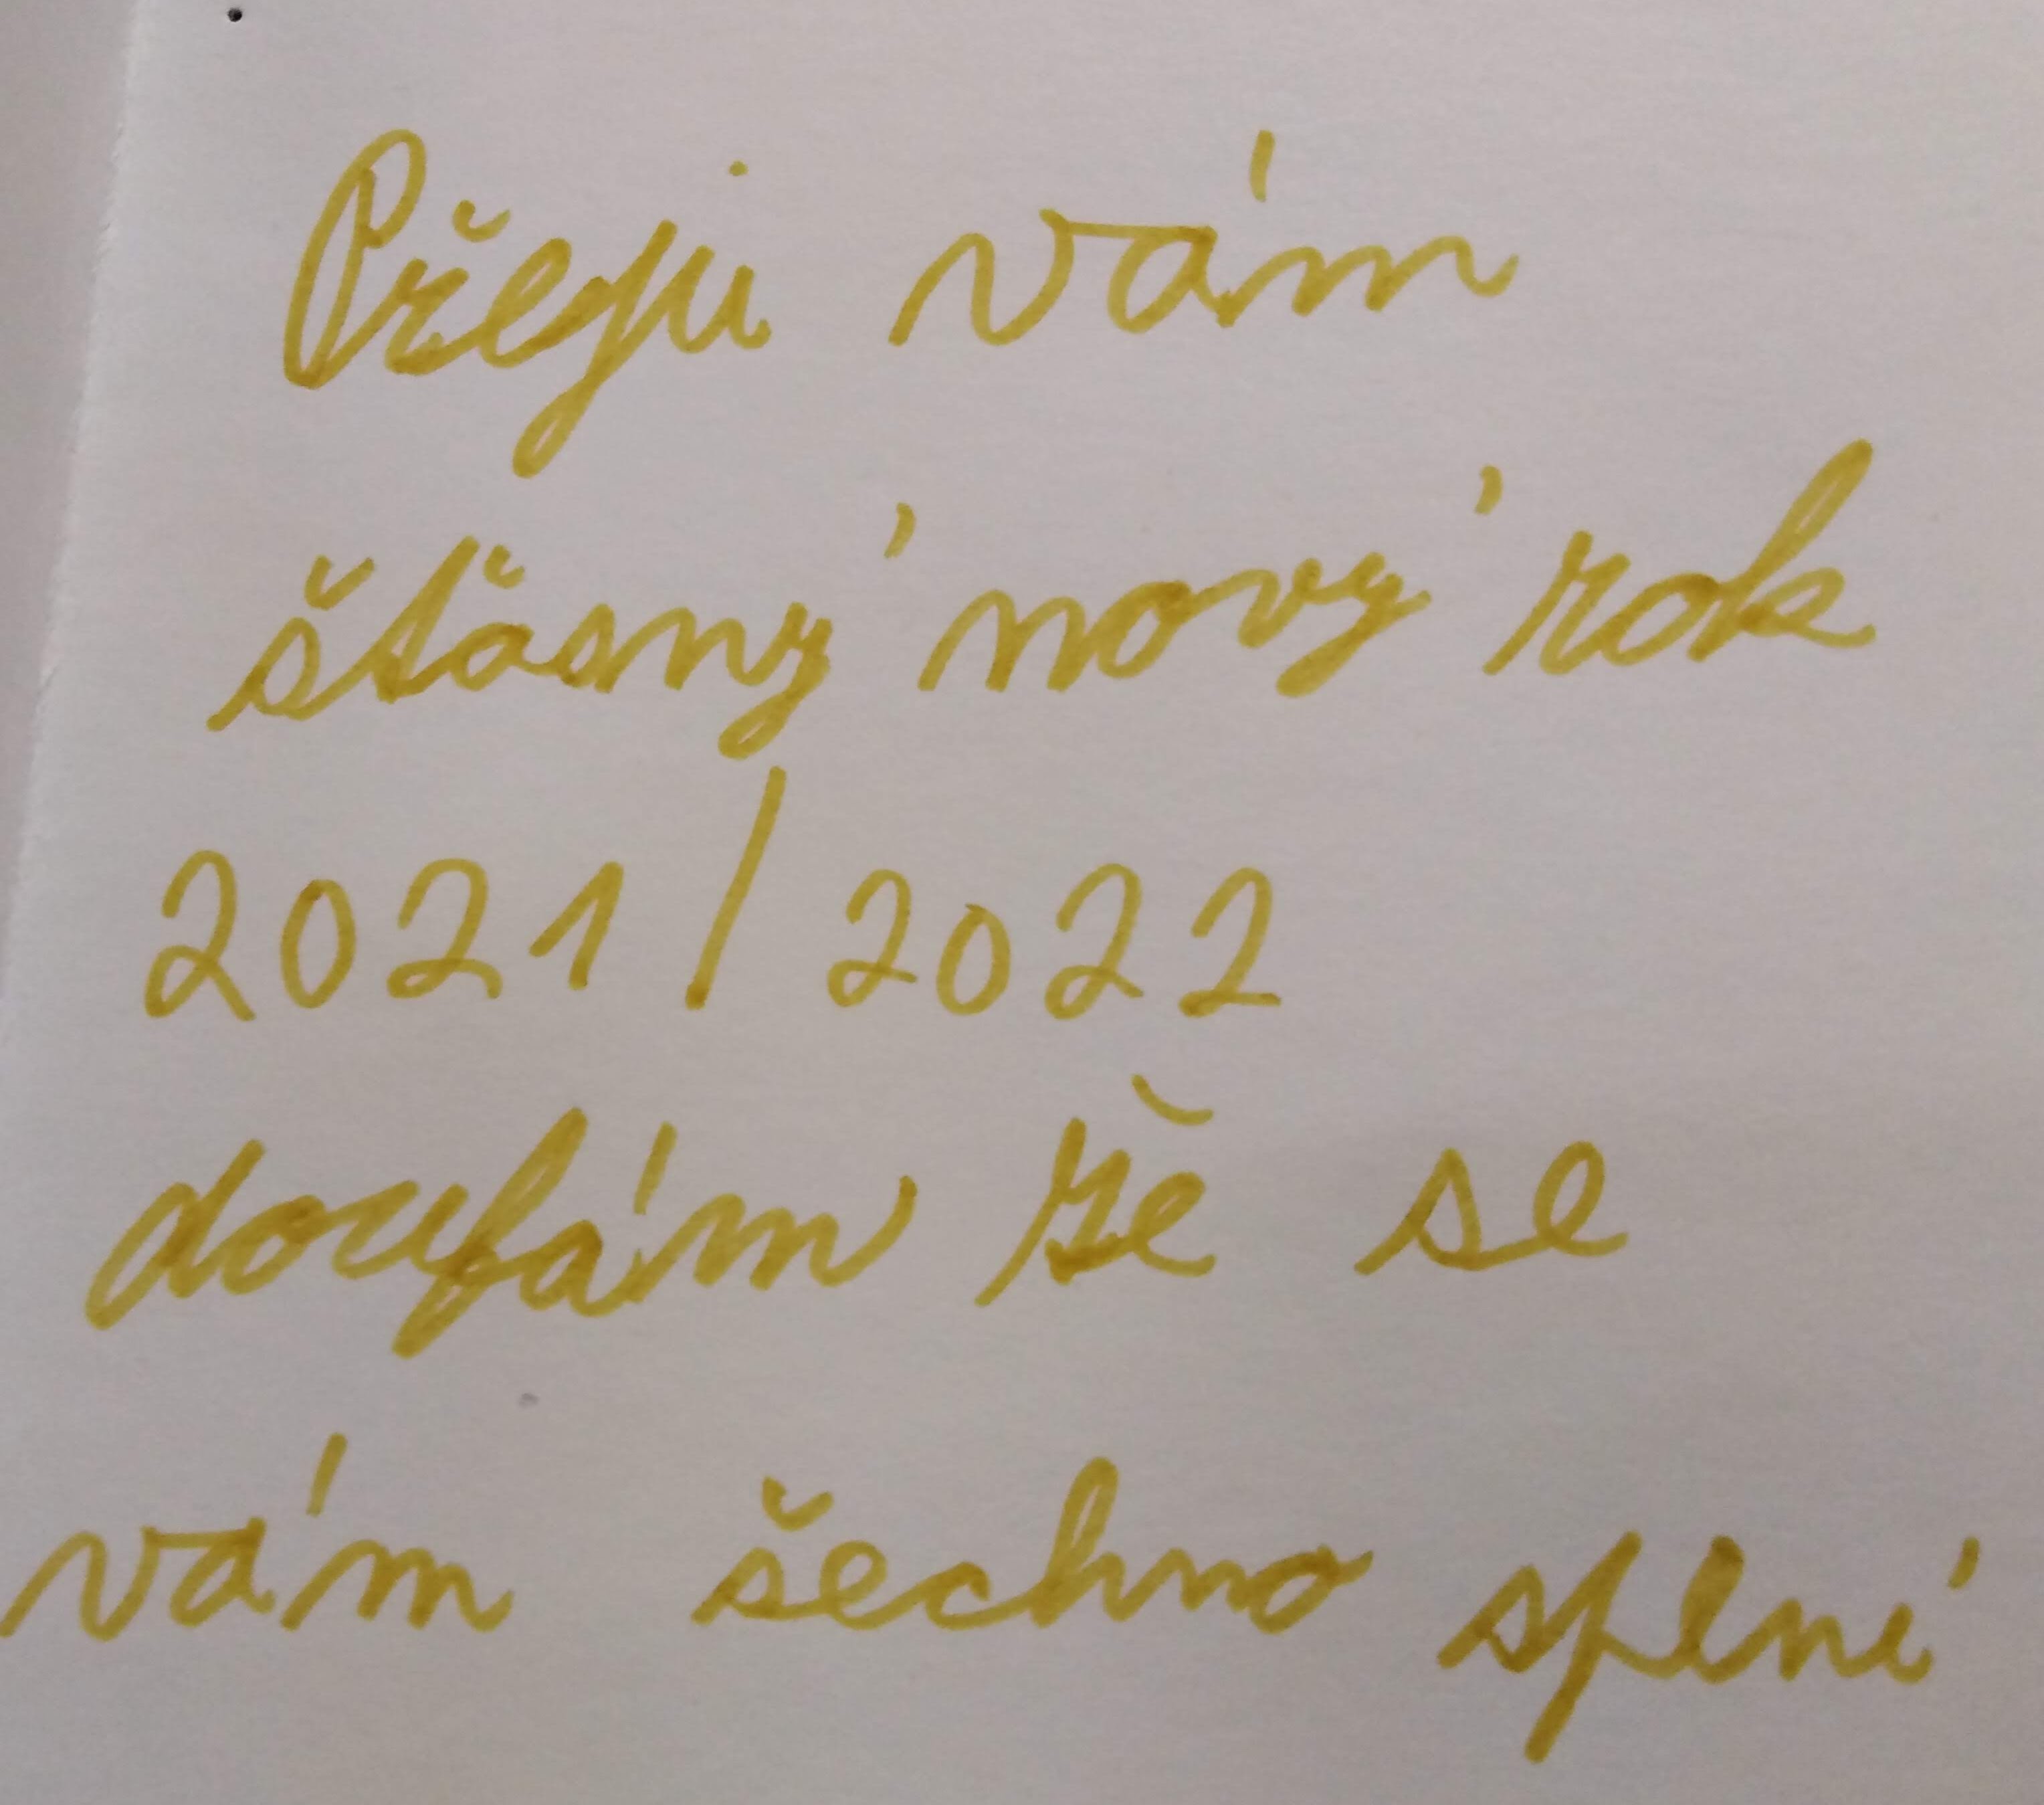 Přeji vám
šťasný nový rok
2021/2022
doufám že se
vám šechno splní